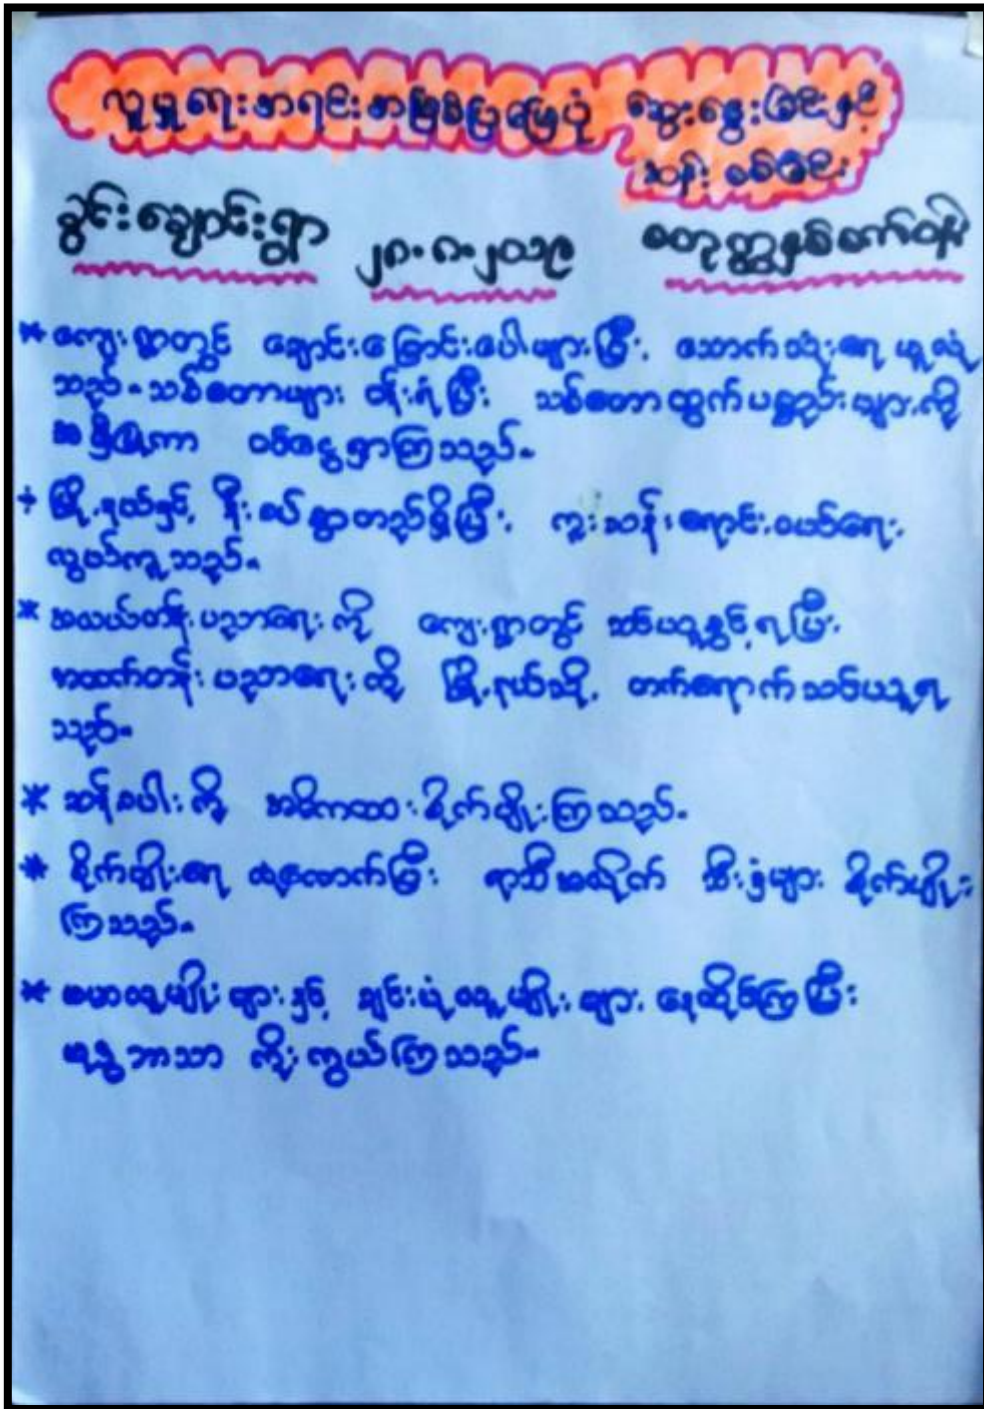 လူမှုရေးအရင်းအမြစ်ပြမြေပုံ ဆွေးနွေးခြင်းနှင့်
ဆန်းစစ်ခြင်း
ခွင်းချောင်းရွာ ၂၈.၈.၂၀၁၉ စတုတ္ထနှစ်စက်ဝန်း
* ကျေးရွာတွင် ချောင်းမြောင်းပေါများပြီး၊ သောက်သုံးရေ ဖူလုံ
သည်။ သစ်တောများ ဝန်းရံပြီး သစ်တောထွက်ပစ္စည်းများကို
အမှီပြုကာ ဝင်ငွေရှာကြသည်။
* မြို့နယ်နှင့် နီးစပ်စွာတည်ရှိပြီး၊ ကူးသန်းရောင်းဝယ်ရေး
လွယ်ကူသည်။
* အလယ်တန်းပညာရေးကို ကျေးရွာတွင် သင်ယူခွင့်ရပြီး
အထက်တန်းပညာရေးကို မြို့နယ်သို့ တက်ရောက်သင်ယူရ
သည်။
* ဆန်စပါးကို အဓိကထား စိုက်ပျိုးကြသည်။
* စိုက်ပျိုးရေ လုံလောက်ပြီး ရာသီအလိုက် သီးနှံများ စိုက်ပျိုး
ကြသည်။
* ဗမာလူမျိုးများနှင့် ချင်းလူမျိုးများ နေထိုင်ကြပြီး
ဗုဒ္ဓဘာသာ ကိုးကွယ်ကြသည်။